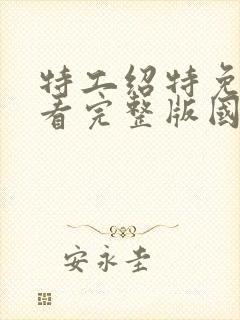 特工绍特免
看完整版國
安永圭